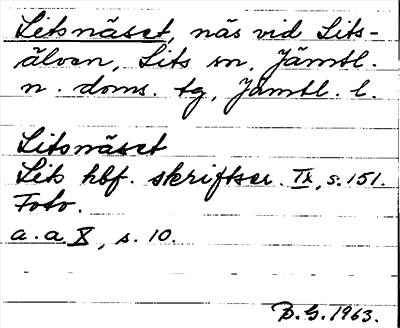 Litsnäset, näs vid Lits-
älven, Lits sn, Jämtl.
n. doms. tg, Jämtl. l.
Litsnäset
Lits hbf. skriftser. IX, s. 151.
Foto.
a. a. X, s. 10.
B. G. 1963.